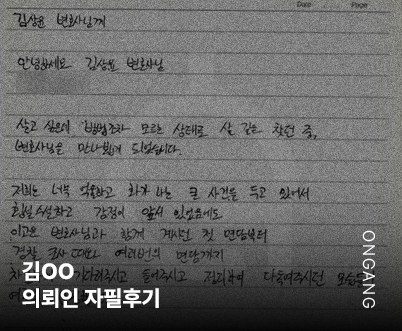 Date Page
김상윤 변호사님께
안녕하세요 김상윤 변호사님
살고 싶은데 방법조차 모르는 상태로 살 길을 찾던 중,
변호사님을 만나뵙게 되었습니다.
저희는 너무 억울하고 화가 나는 큰 사건을 두고 있어서
횡설수설하고 감정이 앞서 있었음에도
이고은 변호사님과 함께 계시던 첫 면담부터
경찰 조사 때와 여러번의 면담까지
기다려주시고 들어주시고 정리하여 다독여주시던 모습은
김OO
의뢰인 자필후기
ONGANG